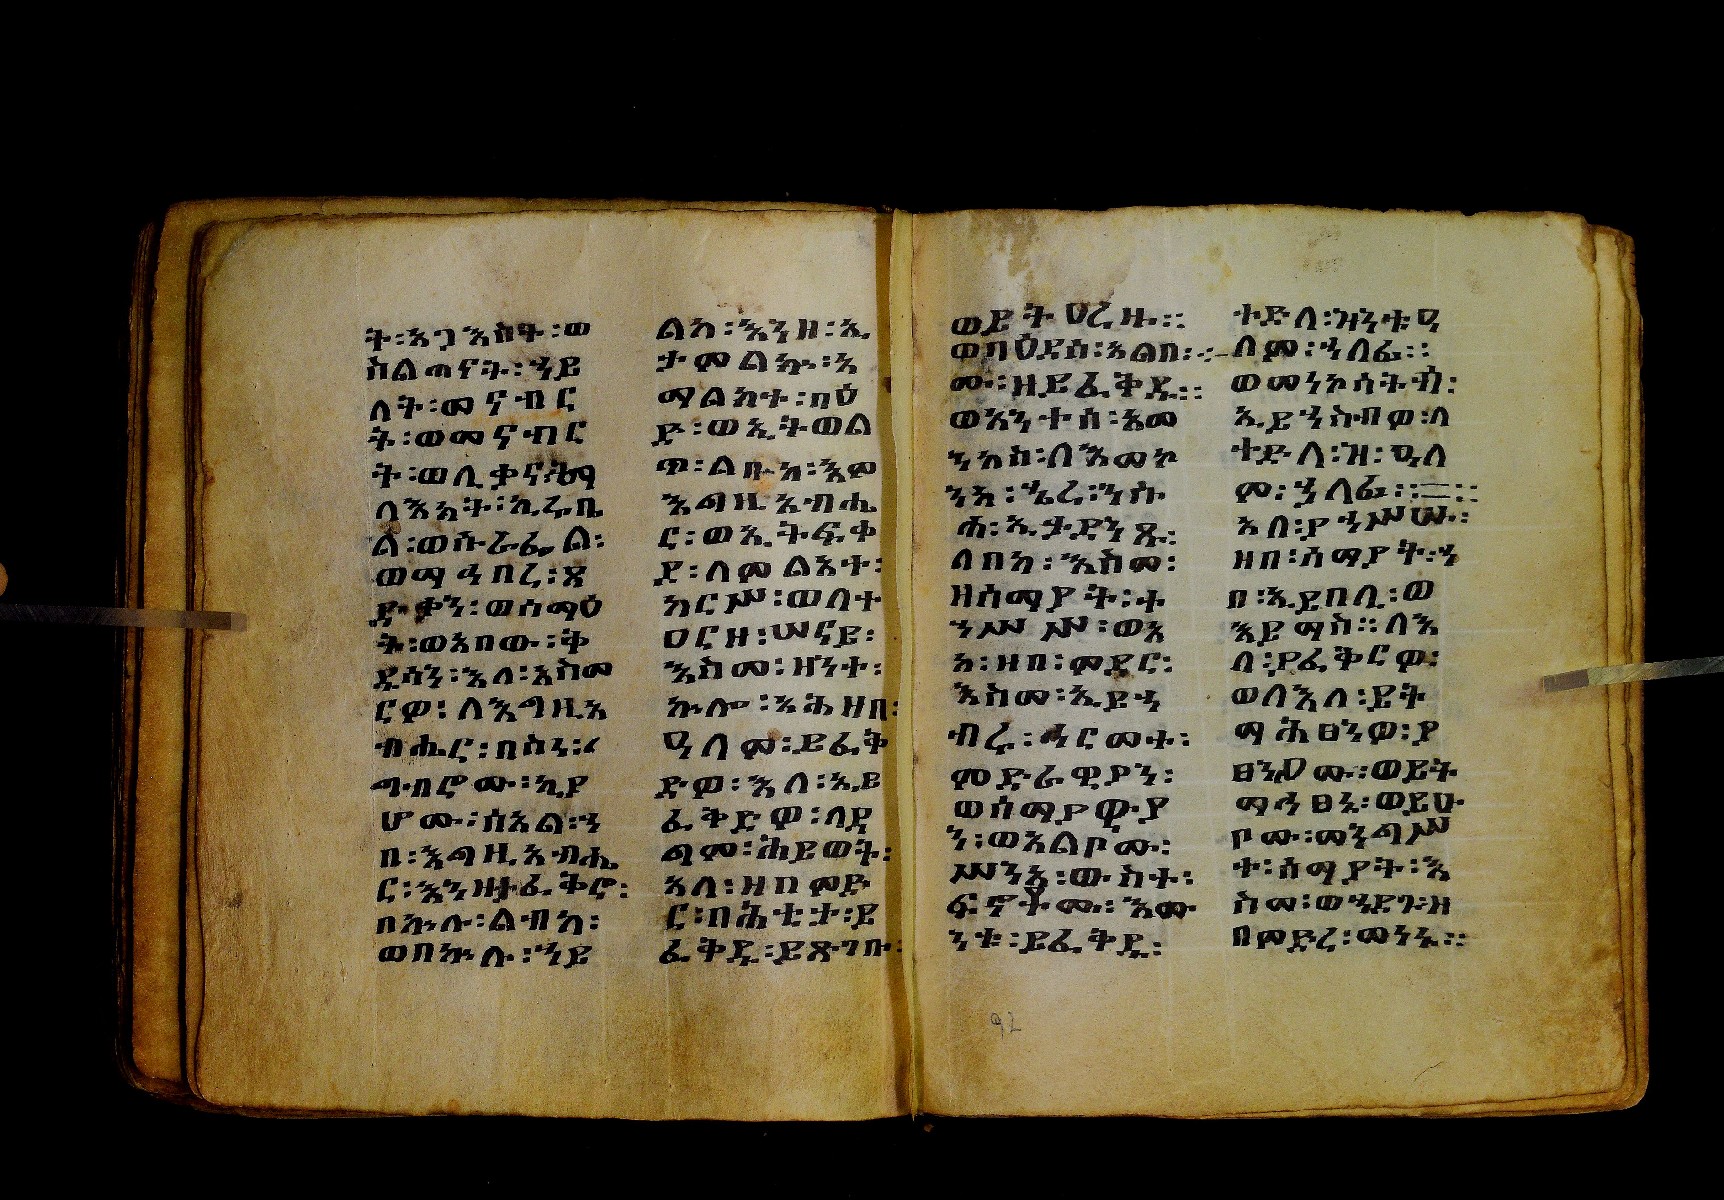 ት፡አጋእስት፡ወ
ስልጣናት፡ኀይ
ላት፡መናብር
ት፡ወመናብር
ት፡ወሊቃናት፡ማ
ላእክት፡ኪሩቤ
ል፡ወሱራፌል፡
ወማኅበረ፡ጻ
ድቃን፡ወሰማዕ
ት፡ወአበው፡ቅ
ዱሳን፡እለ፡አስመ
ርዎ፡ለእግዚአ
ብሔር፡በስነ፡
ግብሮሙ፡ኢያ
ሆሙ፡ሰአል፡ኀ
በ፡እግዚአብሔ
ር፡እንዘ፡ታፈቅሮ፡
በኵሉ፡ልብከ፡
ወበኵሉ፡ኀይ
ልከ፡እንዘ፡ኢ
ታመልኮ፡አ
ማልክተ፡በዐ
ድ፡ወኢትወል
ጥ፡ልበከ፡እም
እግዚአብሔ
ር፡ወኢትፍቅ
ድ፡ለመልአተ፡
ከርሥ፡ወለተ
ዐርዘ፡ሠናይ፡
እስመ፡ዘንተ፡
ኵሎ፡አሕዛበ፡
ዓለም፡ይፈቅ
ድዎ፡እለ፡ኢይ
ፈቅድዎ፡ለዳ
ግም፡ሕይወት፡
አላ፡ዘበምድ
ር፡በሕቲታ፡ይ
ፈቅዱ፡ይጽገቡ፡
ወይትዐረዙ።
ወበዐዶሰ፡አልቦ፡
ሙ፡ዘይፈቅዱ።
ወአንተሰ፡እመ
ንከሰ፡ለእመኮ
ንከ፡ኄረ፡ንሱ
ሐ፡ኢታደንጹ፡
ለበከ፡እስመ፡
ዘሰማያት፡ተ
ንሥሥ፡ወአ
አ፡ዘበ፡ምድር፡
እስመ፡ኢይኀ
ብሩ፡ኅርመተ፡
ምድራዊያን፡
ወሰማያውያ
ን፡ወአልቦሙ፡
ሥንአ፡ውስተ፡
ፍኖቶሙ፡እሙ
ንቱ፡ይፈቅዱ፡
ተድላ፡ዝንቱ፡ዓ
ለም፡ኀላፊ።
ወመነኮሳትሰ፡
ኢይኀስብዎ፡ለ
ተድላ፡ዝ፡ዓለ
ም፡ኀላፊ።
አላ፡ያኀሥሡ፡
ዘበ፡ሰማያት፡ኀ
በ፡ኢይበሊ፡ወ
ኢይማስ።ለእ
ለ፡ያፈቅርዎ፡
ወለእለ፡ይት
ማሕፀንዎ፡ያ
ፀንዖሙ፡ወይት
ማኅፀኒ፡ወይሁ
ቦሙ፡መንግሥ
ተ፡ሰማያት፡እ
ስመ፡ወኀደጉ፡ዘ
በምድረ፡መነኒ።
92